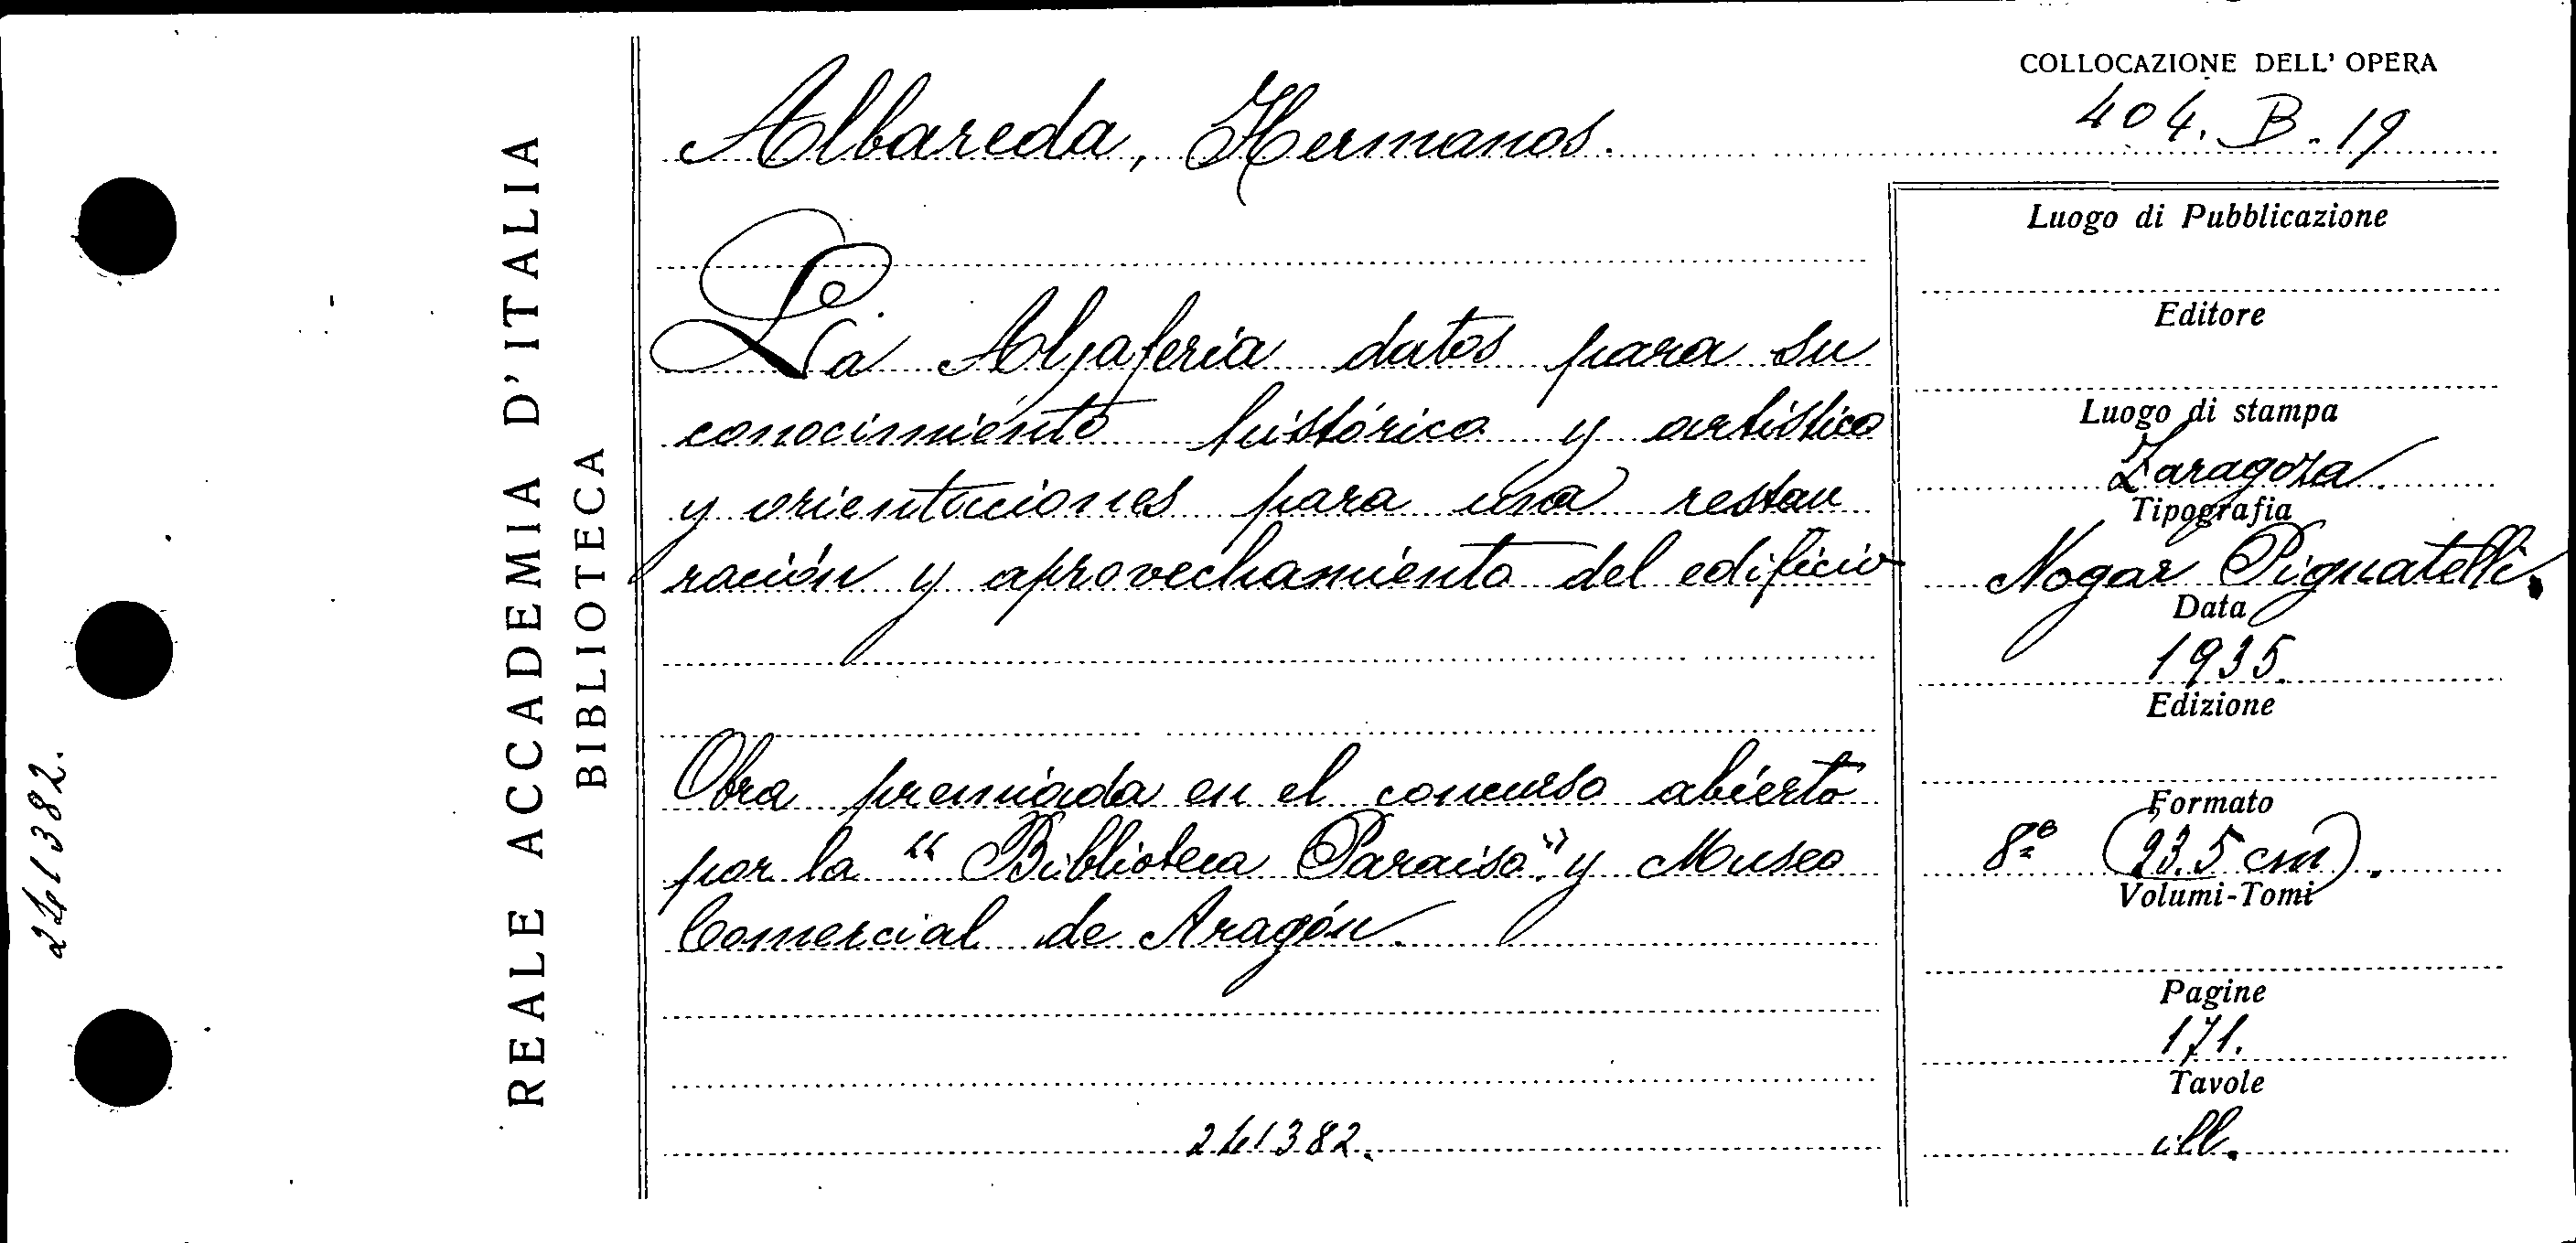 COLLOCAZIONE DELL' OPERA
Albareda, Hermanos.
404. B. 19
La Aljaferia datos para su
conocimiénto histórico y artistico
y orientaciones para una restau
ración y aprovechamiento del edificio
Obra premiada en el concurso abierto
por la “Biblioteca Paraiso” y Museo
Comercial de Aragón.
241382.
Luogo di Pubblicazione
Editore
Luogo di stampa
Zaragoza
Tipografia
Nogar Pignatelli.
Data
1935.
Edizione
Formato
8º (23.5 cm).
Volumi-Tomi
Pagine
171.
Tavole
ill.
REALE ACCADEMIA D'ITALIA
BIBLIOTECA
241382.